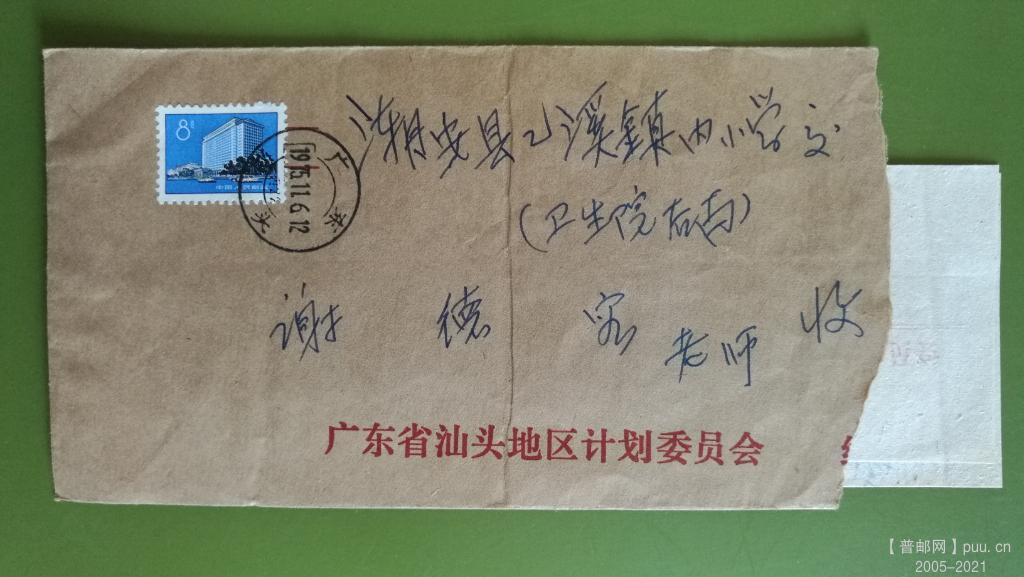 8分
中国人民邮政
广东
1975.11.6.12
汕头
潮安县江溪镇内小学交
(卫生院右面)
谢德容老师收
广东省汕头地区计划委员会
【普邮网】puu.cn
2005-2021